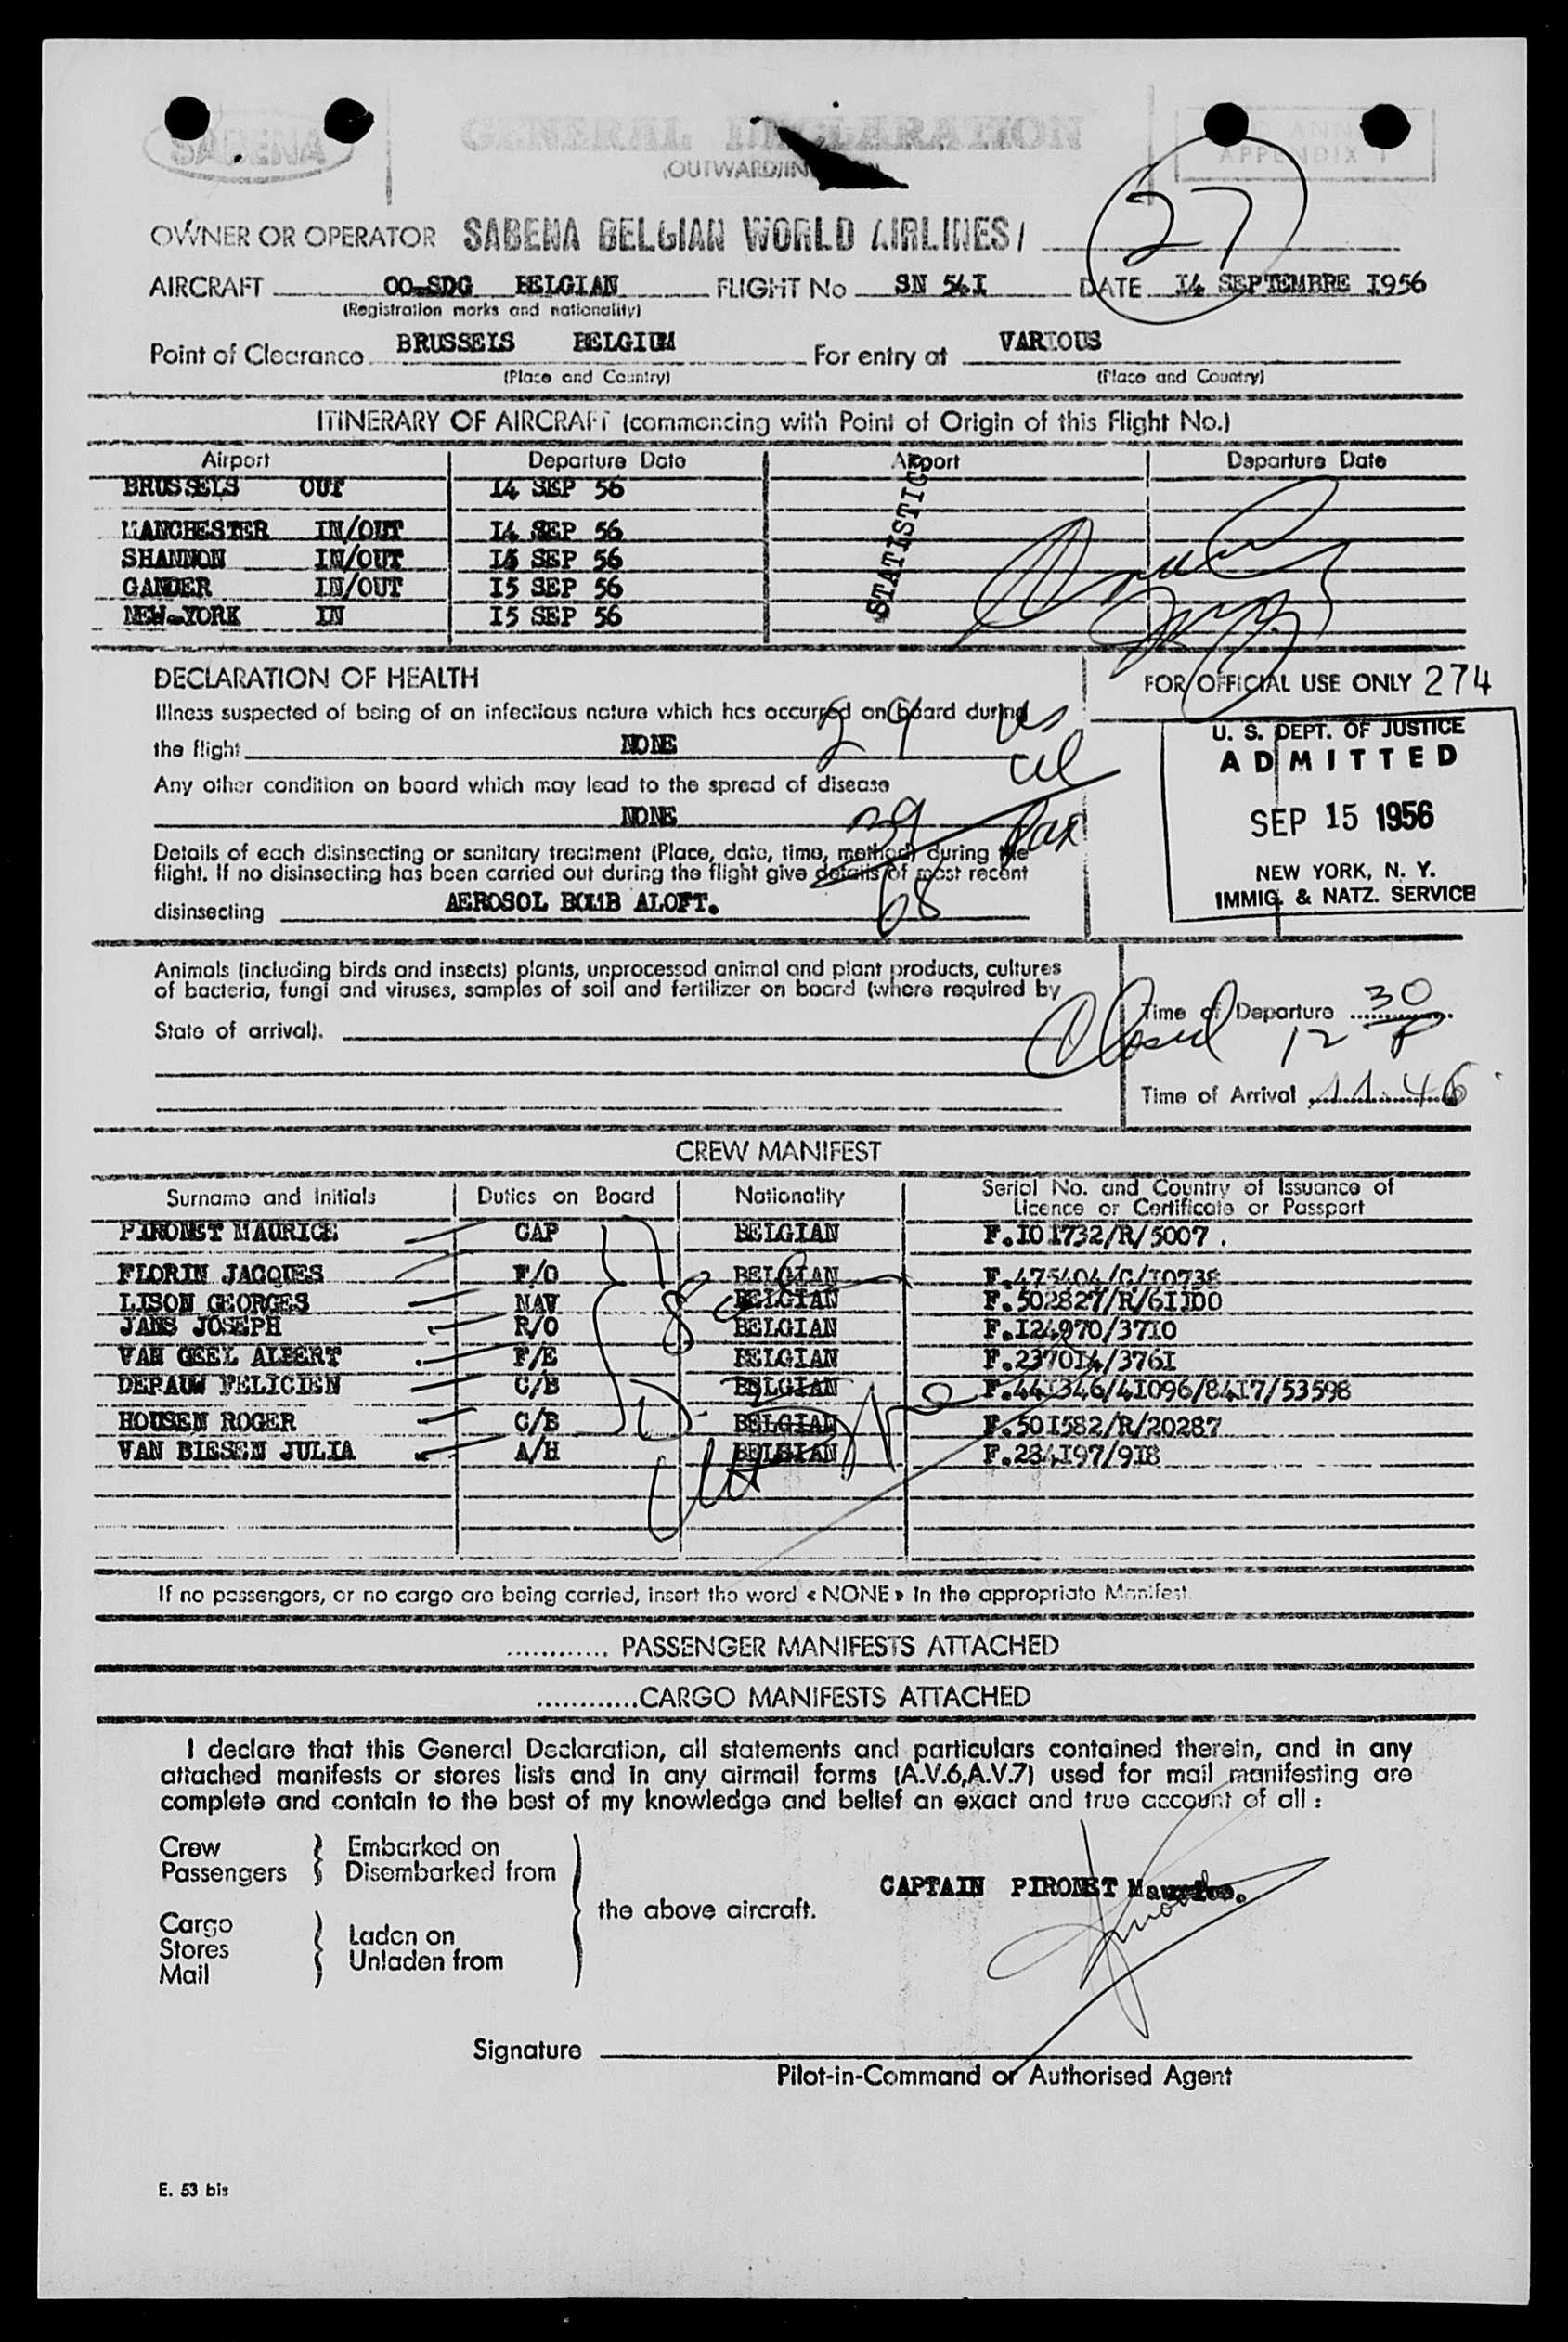 SABENA
GENERAL DECLARATION
(OUTWARD/IN
ANN
APPENDIX 1
27
OWNER OR OPERATOR SABENA BELGIAN WORLD AIRLINES/
AIRCRAFT OO-SDG BELGIAN FLIGHT No SN 54I DATE I4 SEPTEMBRE I956
(Registration marks and nationality)
Point of Clearance BRUSSELS BELGIUM For entry at VARIOUS
(Place and Country) (Place and Country)
ITINERARY OF AIRCRAFT (commencing with Point of Origin of this Flight No.)
Airport Departure Date Airport Departure Date
BRUSSELS OUT I4 SEP 56
MANCHESTER IN/OUT I4 SEP 56
SHANNON IN/OUT SEP 56
GANDER IN/OUT I5 SEP 56
NEW-YORK IN I5 SEP 56
STATISTICS
DECLARATION OF HEALTH
FOR OFFICIAL USE ONLY 274
Illness suspected of being of an infectious nature which has occurred on board during
the flight NONE
29 us
cit
Any other condition on board which may lead to the spread of disease
NONE
39 Pax
Details of each disinsecting or sanitary treatment (Place, date, time, method) during the
flight. If no disinsecting has been carried out during the flight give details of most recent
disinsecting AEROSOL BOMB ALOFT.
68
U. S. DEPT. OF JUSTICE
ADMITTED
SEP 15 1956
NEW YORK, N. Y.
IMMIG. & NATZ. SERVICE
Animals (including birds and insects) plants, unprocessed animal and plant products, cultures
of bacteria, fungi and viruses, samples of soil and fertilizer on board (where required by
State of arrival).
Time of Departure
Closed 12 30 P
Time of Arrival 11.46
CREW MANIFEST
Surname and Initials Duties on Board Nationality Serial No. and Country of Issuance of
Licence or Certificate or Passport
PIRONET MAURICE CAP BELGIAN F.IOI732/R/5007.
FLORIN JACQUES F/O BELGIAN F.475404/C/I0738
LISON GEORGES NAV BELGIAN F.502827/R/6IID0
JANS JOSEPH R/O BELGIAN F.I24970/37IO
VAN GEEL ALBERT F/E BELGIAN F.2370I4/376I
DEPAUW FELICIEN C/B BELGIAN F.44I346/4I096/84I7/53598
HOUSEN ROGER C/B BELGIAN F.50I582/R/20287
VAN BIESEN JULIA A/H BELGIAN F.284I97/9I8
8
If no passengers, or no cargo are being carried, insert the word « NONE » in the appropriate Manifest.
............ PASSENGER MANIFESTS ATTACHED
............CARGO MANIFESTS ATTACHED
I declare that this General Declaration, all statements and particulars contained therein, and in any
attached manifests or stores lists and in any airmail forms (A.V.6,A.V.7) used for mail manifesting are
complete and contain to the best of my knowledge and belief an exact and true account of all :
Crew Embarked on
Passengers Disembarked from
the above aircraft.
Cargo
Stores Laden on
Mail Unladen from
CAPTAIN PIRONET Maurice.
Signature
Pilot-in-Command or Authorised Agent
E. 53 bis